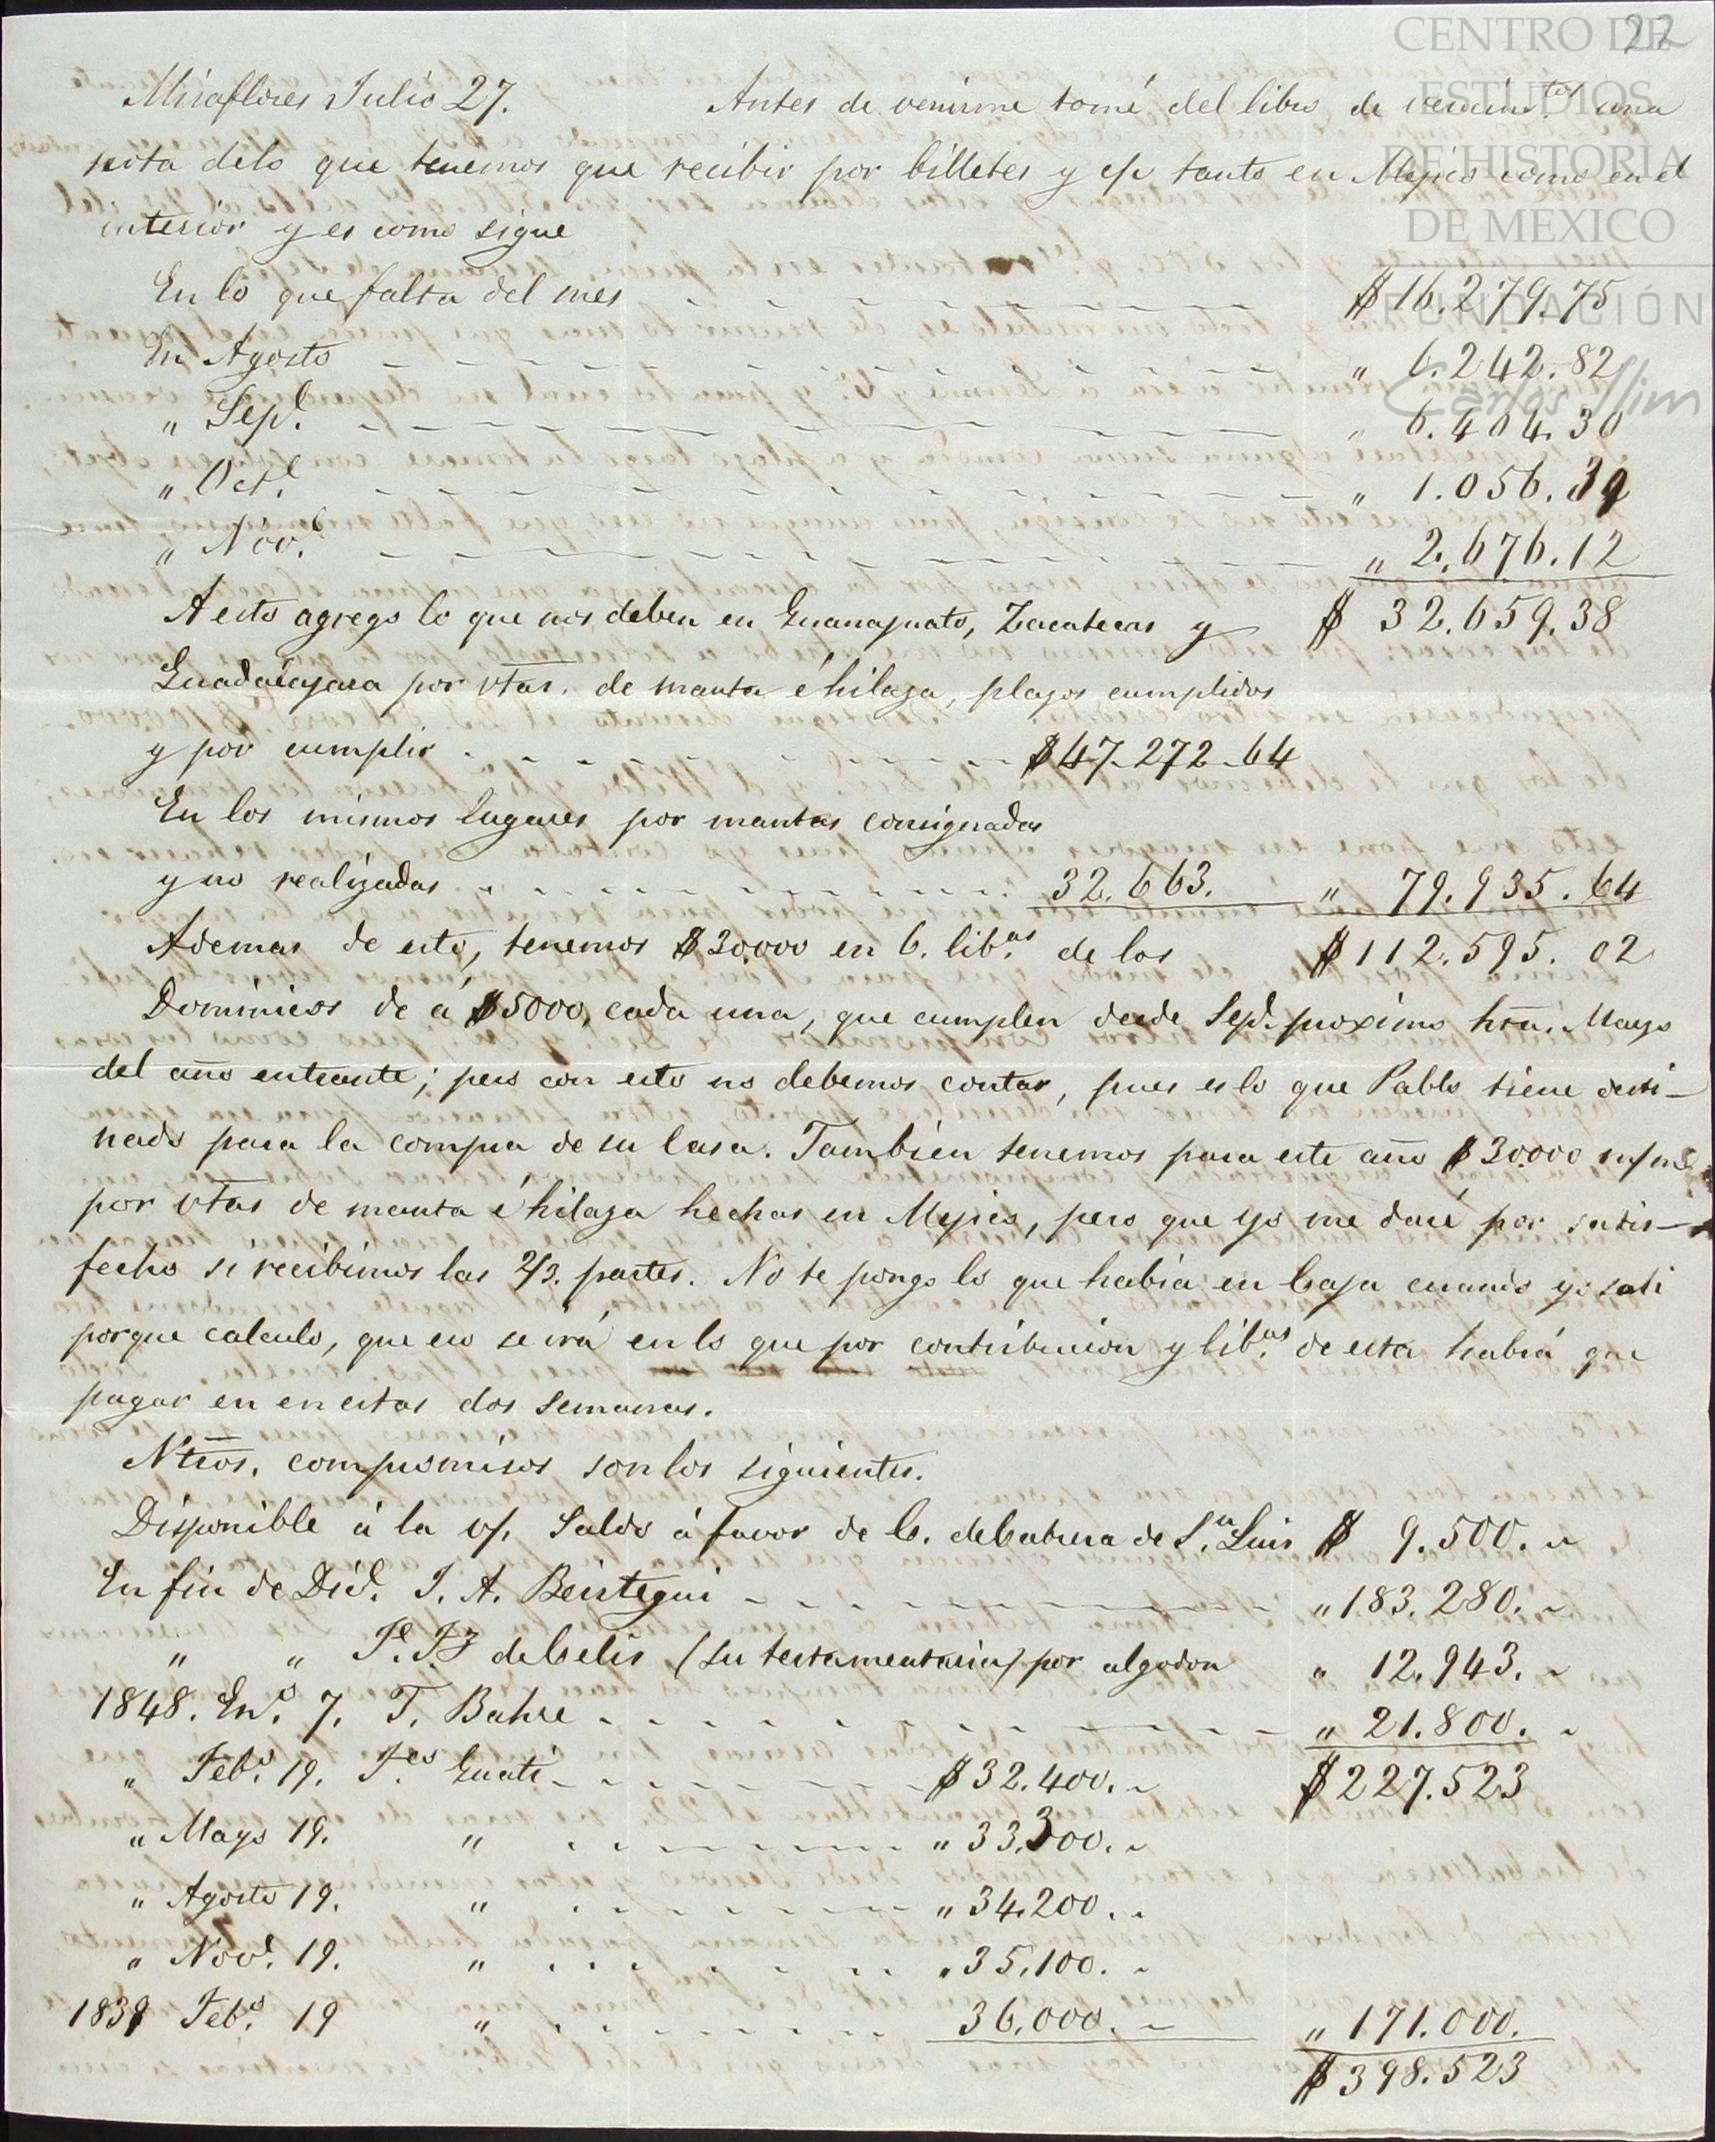 22
CENTRO DE
ESTUDIOS
DE HISTORIA
DE MEXICO
FUNDACIÓN
Carlos Slim
Miraflores Julio 27. Antes de venirme tomé del libro de vencim.tos una
nota delo que tenemos que recibir por billetes y c/c tanto en Mejico como en el
interior y es como sigue
En lo que falta del mes $ 16.279.75
En Agosto " 6.242.82
" Sep.e " 6.404.30
" Oct.e " 1.056.39
" Nov.e " 2.676.12
A esto agrego lo que nos deben en Guanajuato, Zacatecas y $ 32.659.38
Guadalajara por vtas. de manta é hilaza, plazos cumplidos
y por cumplir $ 47.272.64
En los mismos lugares por mantas consignadas
y no realizadas 32.663. " 79.935.64
Ademas de esto, tenemos $ 30.000 en 6. lib.as de los $ 112.595.02
Dominicos de á $5000, cada una, que cumplen desde Sep.e proximo hta. Mayo
del año entrante; pero con esto no debemos contar, pues es lo que Pablo tiene desti-
nado para la compra de su Casa. Tambien tenemos para este año $ 30.000
por vtas de manta é hilaza hechas en Mejico, pero que yo me daré por satis-
fecho si recibimos las 2/3. partes. No te pongo lo que habia en Caja cuando yo salí
porque calculo, que eso se irá en lo que por contribucion y lib.as de esta habrá que
pagar en en estas dos semanas.
Ntros. compromisos son los siguientes.
Disponible á la v/. Saldo á favor de C. de Cabrera de S.n Luis $ 9.500. "
En fin de Dic.e J. A. Beistegui " 183.280. "
" " de Celis (su testamentaria) por algodon " 12.943. "
1848. En.o 7. T. Bahre " 21.800. "
" Feb.o 19. F.co Guati $ 32.400. " $ 227.523
" Mayo 19. " " 33.300. "
" Agosto 19. " " 34.200. "
" Nov.e 19. " " 35.100. "
1839 Feb.o 19 " 36.000. " " 171.000.
$ 398.523